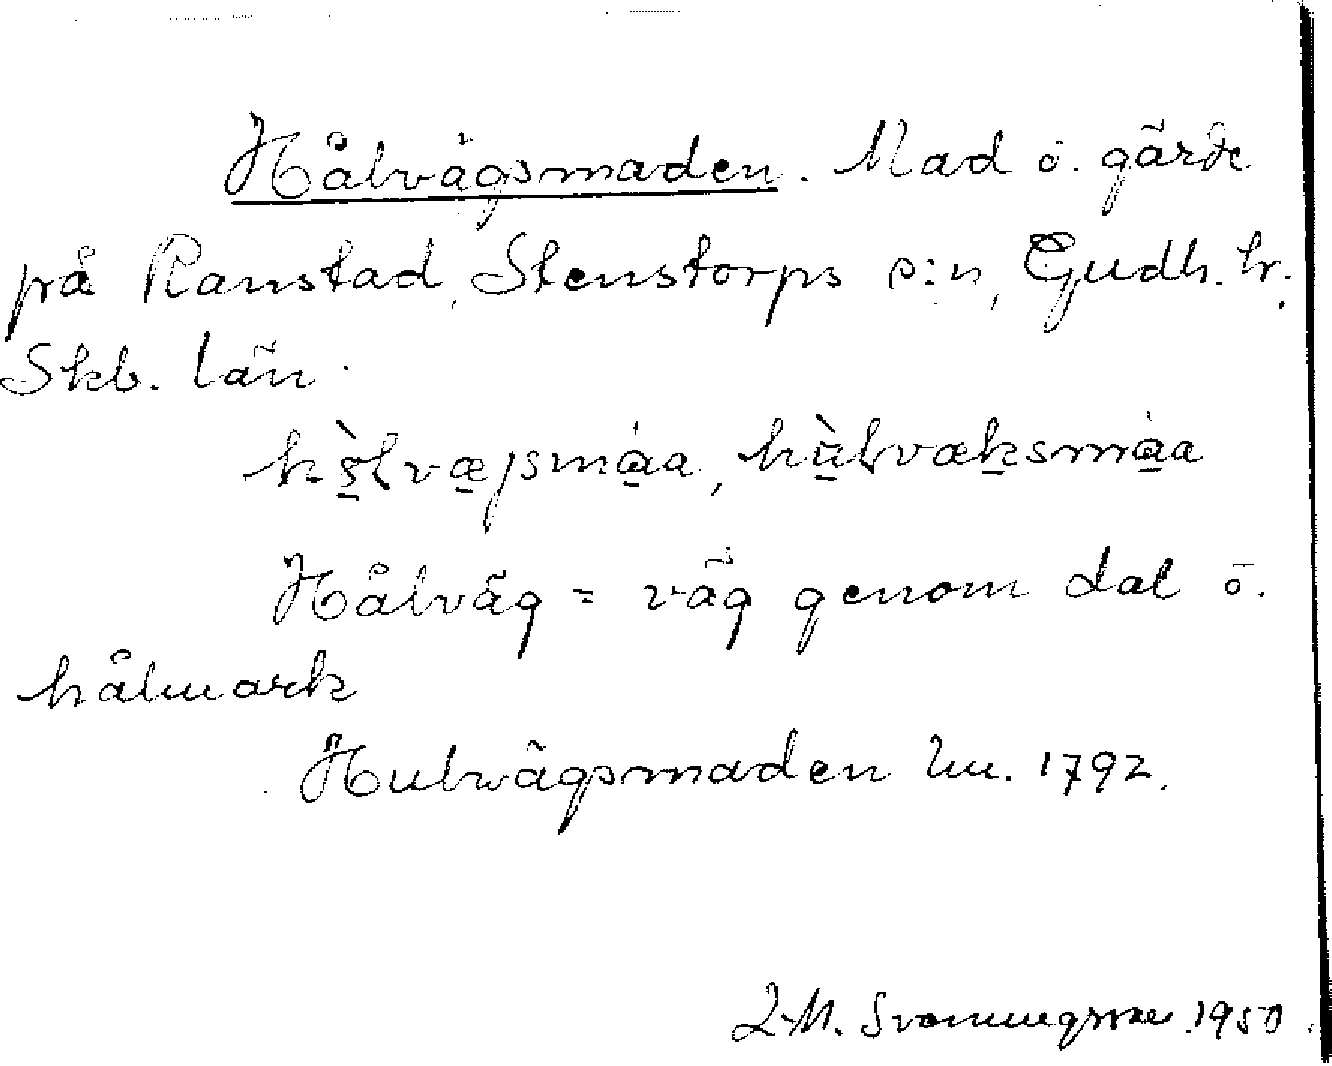 Hålvägsmaden. Mad ö. gärde
på Ranstad, Stenstorps s:n, Gudh. hr.
Skb. län.
Hålväg = väg genom dal ö.
hålmark
Hulvägsmaden lm. 1792.
1950